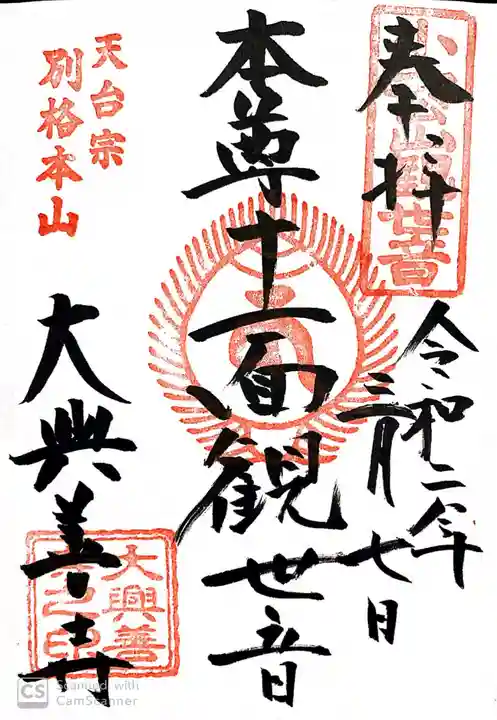 奉拝
令和二年
三月七日
本尊十一面観世音
天台宗
別格本山
大興善寺
大興善
寺之印
CS Scanned with
CamScanner